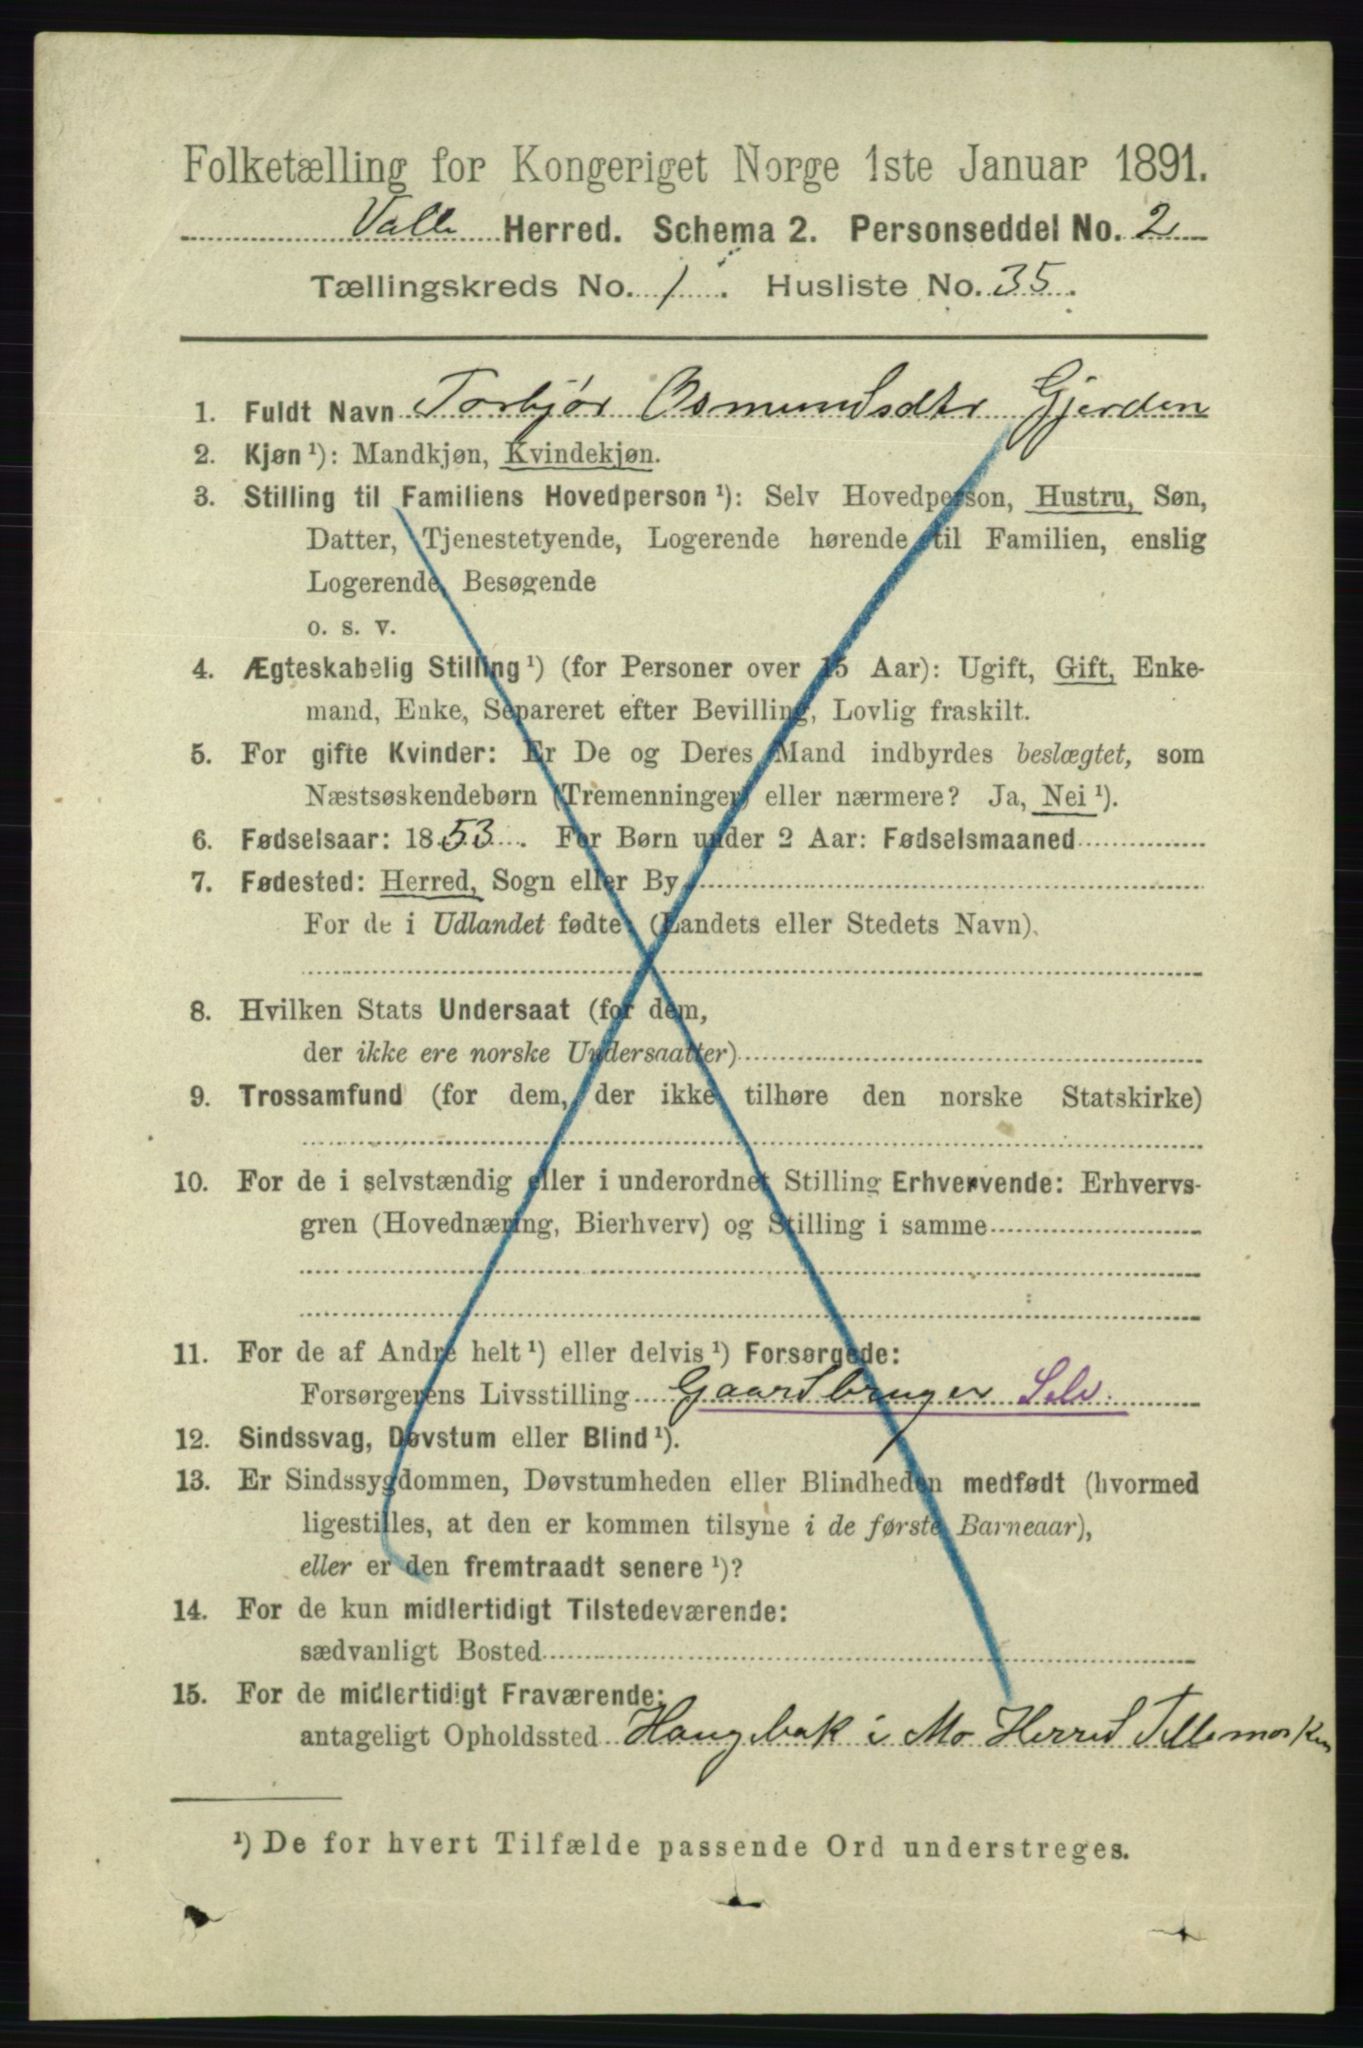 Folketælling for Kongeriget Norge 1ste Januar 1891.
Valle Herred. Schema 2. Personseddel No. 2
Tællingskreds No. 1. Husliste No. 35.
1. Fuldt Navn Torbjør Osmundsdtr Gjerden
2. Kjøn ¹): Mandkjøn, Kvindekjøn.
3. Stilling til Familiens Hovedperson ¹): Selv Hovedperson, Hustru, Søn,
Datter, Tjenestetyende, Logerende hørende til Familien, enslig
Logerende, Besøgende
o. s. v.
4. Ægteskabelig Stilling ¹) (for Personer over 15 Aar): Ugift, Gift, Enke-
mand, Enke, Separeret efter Bevilling, Lovlig fraskilt.
5. For gifte Kvinder: Er De og Deres Mand indbyrdes beslægtet, som
Næstsøskendebørn (Tremenninger) eller nærmere? Ja, Nei ¹).
6. Fødselsaar: 1853. For Børn under 2 Aar: Fødselsmaaned
7. Fødested: Herred, Sogn eller By
For de i Udlandet fødte, (Landets eller Stedets Navn).
8. Hvilken Stats Undersaat (for dem,
der ikke ere norske Undersaatter)
9. Trossamfund (for dem, der ikke tilhøre den norske Statskirke)
10. For de i selvstændig eller i underordnet Stilling Erhvervende: Erhvervs-
gren (Hovednæring, Bierhverv) og Stilling i samme
11. For de af Andre helt ¹) eller delvis ¹) Forsørgede:
Forsørgerens Livsstilling Gaardbruger Selv.
12. Sindssvag, Døvstum eller Blind ¹).
13. Er Sindssygdommen, Døvstumheden eller Blindheden medfødt (hvormed
ligestilles, at den er kommen tilsyne i de første Barneaar),
eller er den fremtraadt senere ¹)?
14. For de kun midlertidigt Tilstedeværende:
sædvanligt Bosted
15. For de midlertidigt Fraværende:
antageligt Opholdssted Haugebak i Mo Herred Tellemarken
¹) De for hvert Tilfælde passende Ord understreges.